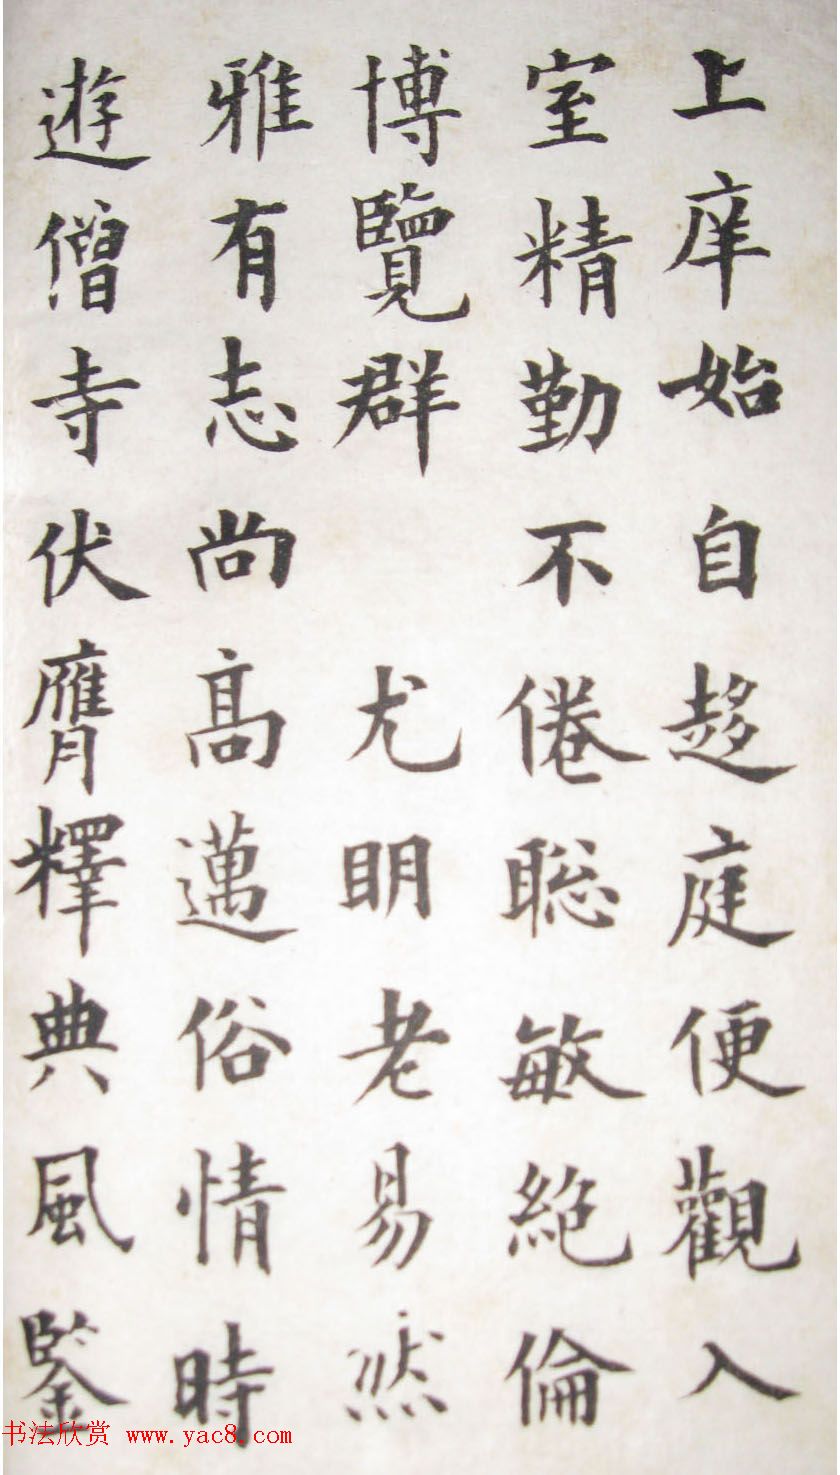 上庠始自趍庭便觀入
室精勤不倦聡敏絕倫
博覽群 尤明老易然
雅有志尚高邁俗情時
遊僧寺伏膺釋典風鑒
书法欣赏 www.yac8.com